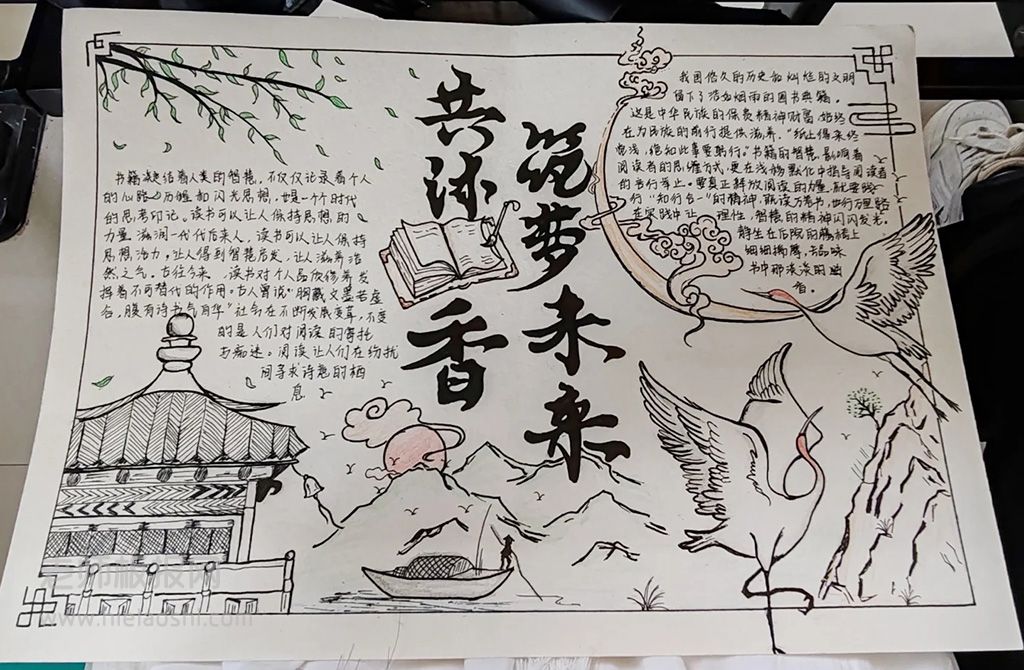 共沐
香
筑梦未来
书籍凝结着人类的智慧,不仅仅记录着个人
的心路历程和闪光思想,也是一个时代
的思考印记。读书可以让人保持思想的
力量,滋润一代代后来人。读书可以让人保持
思想活力,让人得到智慧启发,让人滋养浩
然之气。古往今来,读书对个人品质修养发
挥着不可替代的作用。古人曾说"胸藏文墨若虚
谷,腹有诗书气自华"社会在不断发展变革,不变
的是人们对阅读的寄托
与痴迷。阅读让人们在纷扰
间寻求诗意的栖
息
我国悠久的历史和灿烂的文明
留下了浩如烟雨的图书典籍。
这是中华民族的保贵精神财富,始终
在为民族的前行提供滋养。"纸上得来终
觉浅,绝知此事要躬行。"书籍的智慧,影响着
阅读者的思维方式,更在潜移默化中指导阅读者
的言行举止。要真正释放阅读的力量,就要践
行"知行合一"的精神,既读万卷书,也行万里路
在实践中让 理性,智慧的精神闪闪发光。
静坐在后院的藤椅上
细细揣摩,去品味
书中那淡淡的幽
香。
老师板报网
www.nielaoshi.com